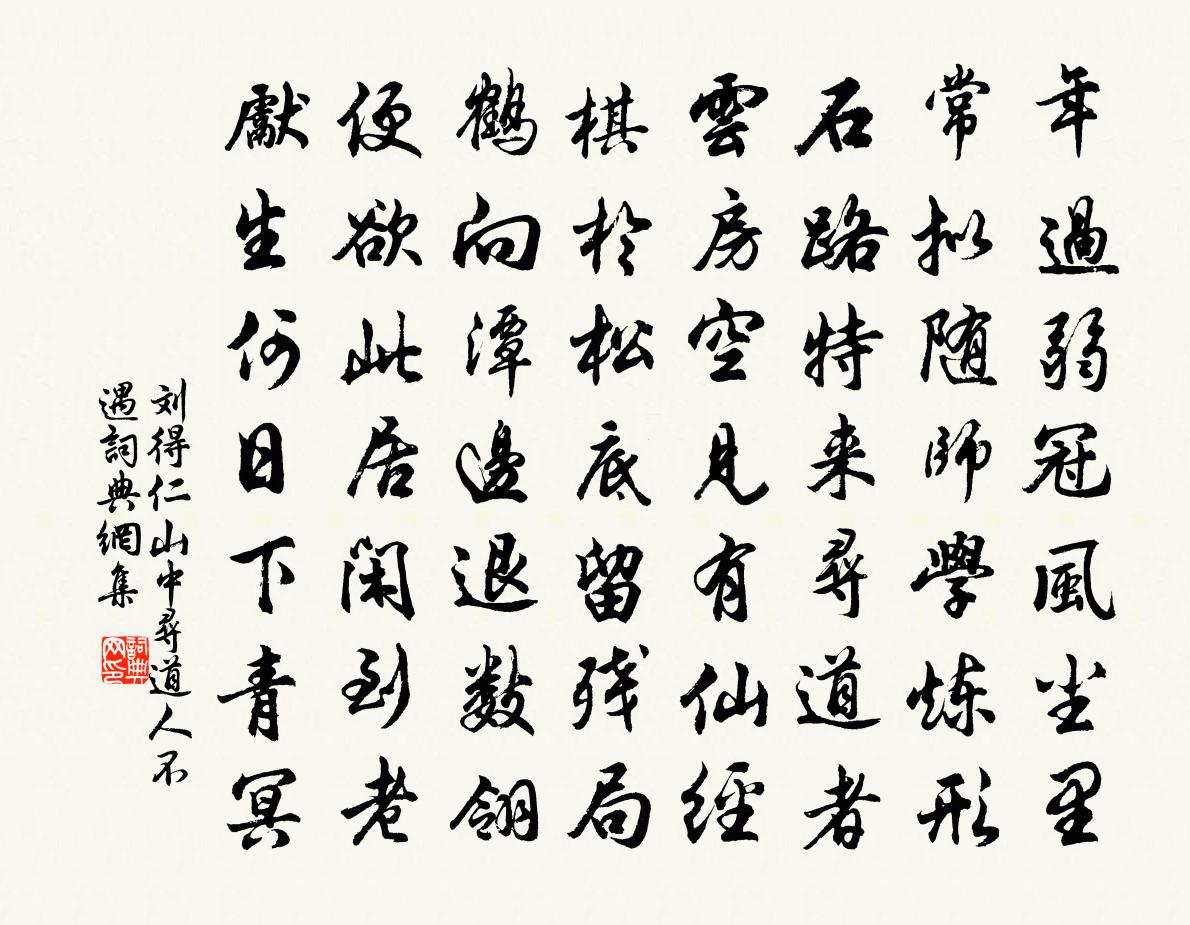 年過弱冠風尘里
常拟随師學炼形
石路特来尋道者
雲房空見有仙經
棋於松底留残局
鶴向潭邊退数翎
便欲此居閑到老
獻生何日下青冥
刘得仁山中尋道人不
遇詞典網集
詞典
网印